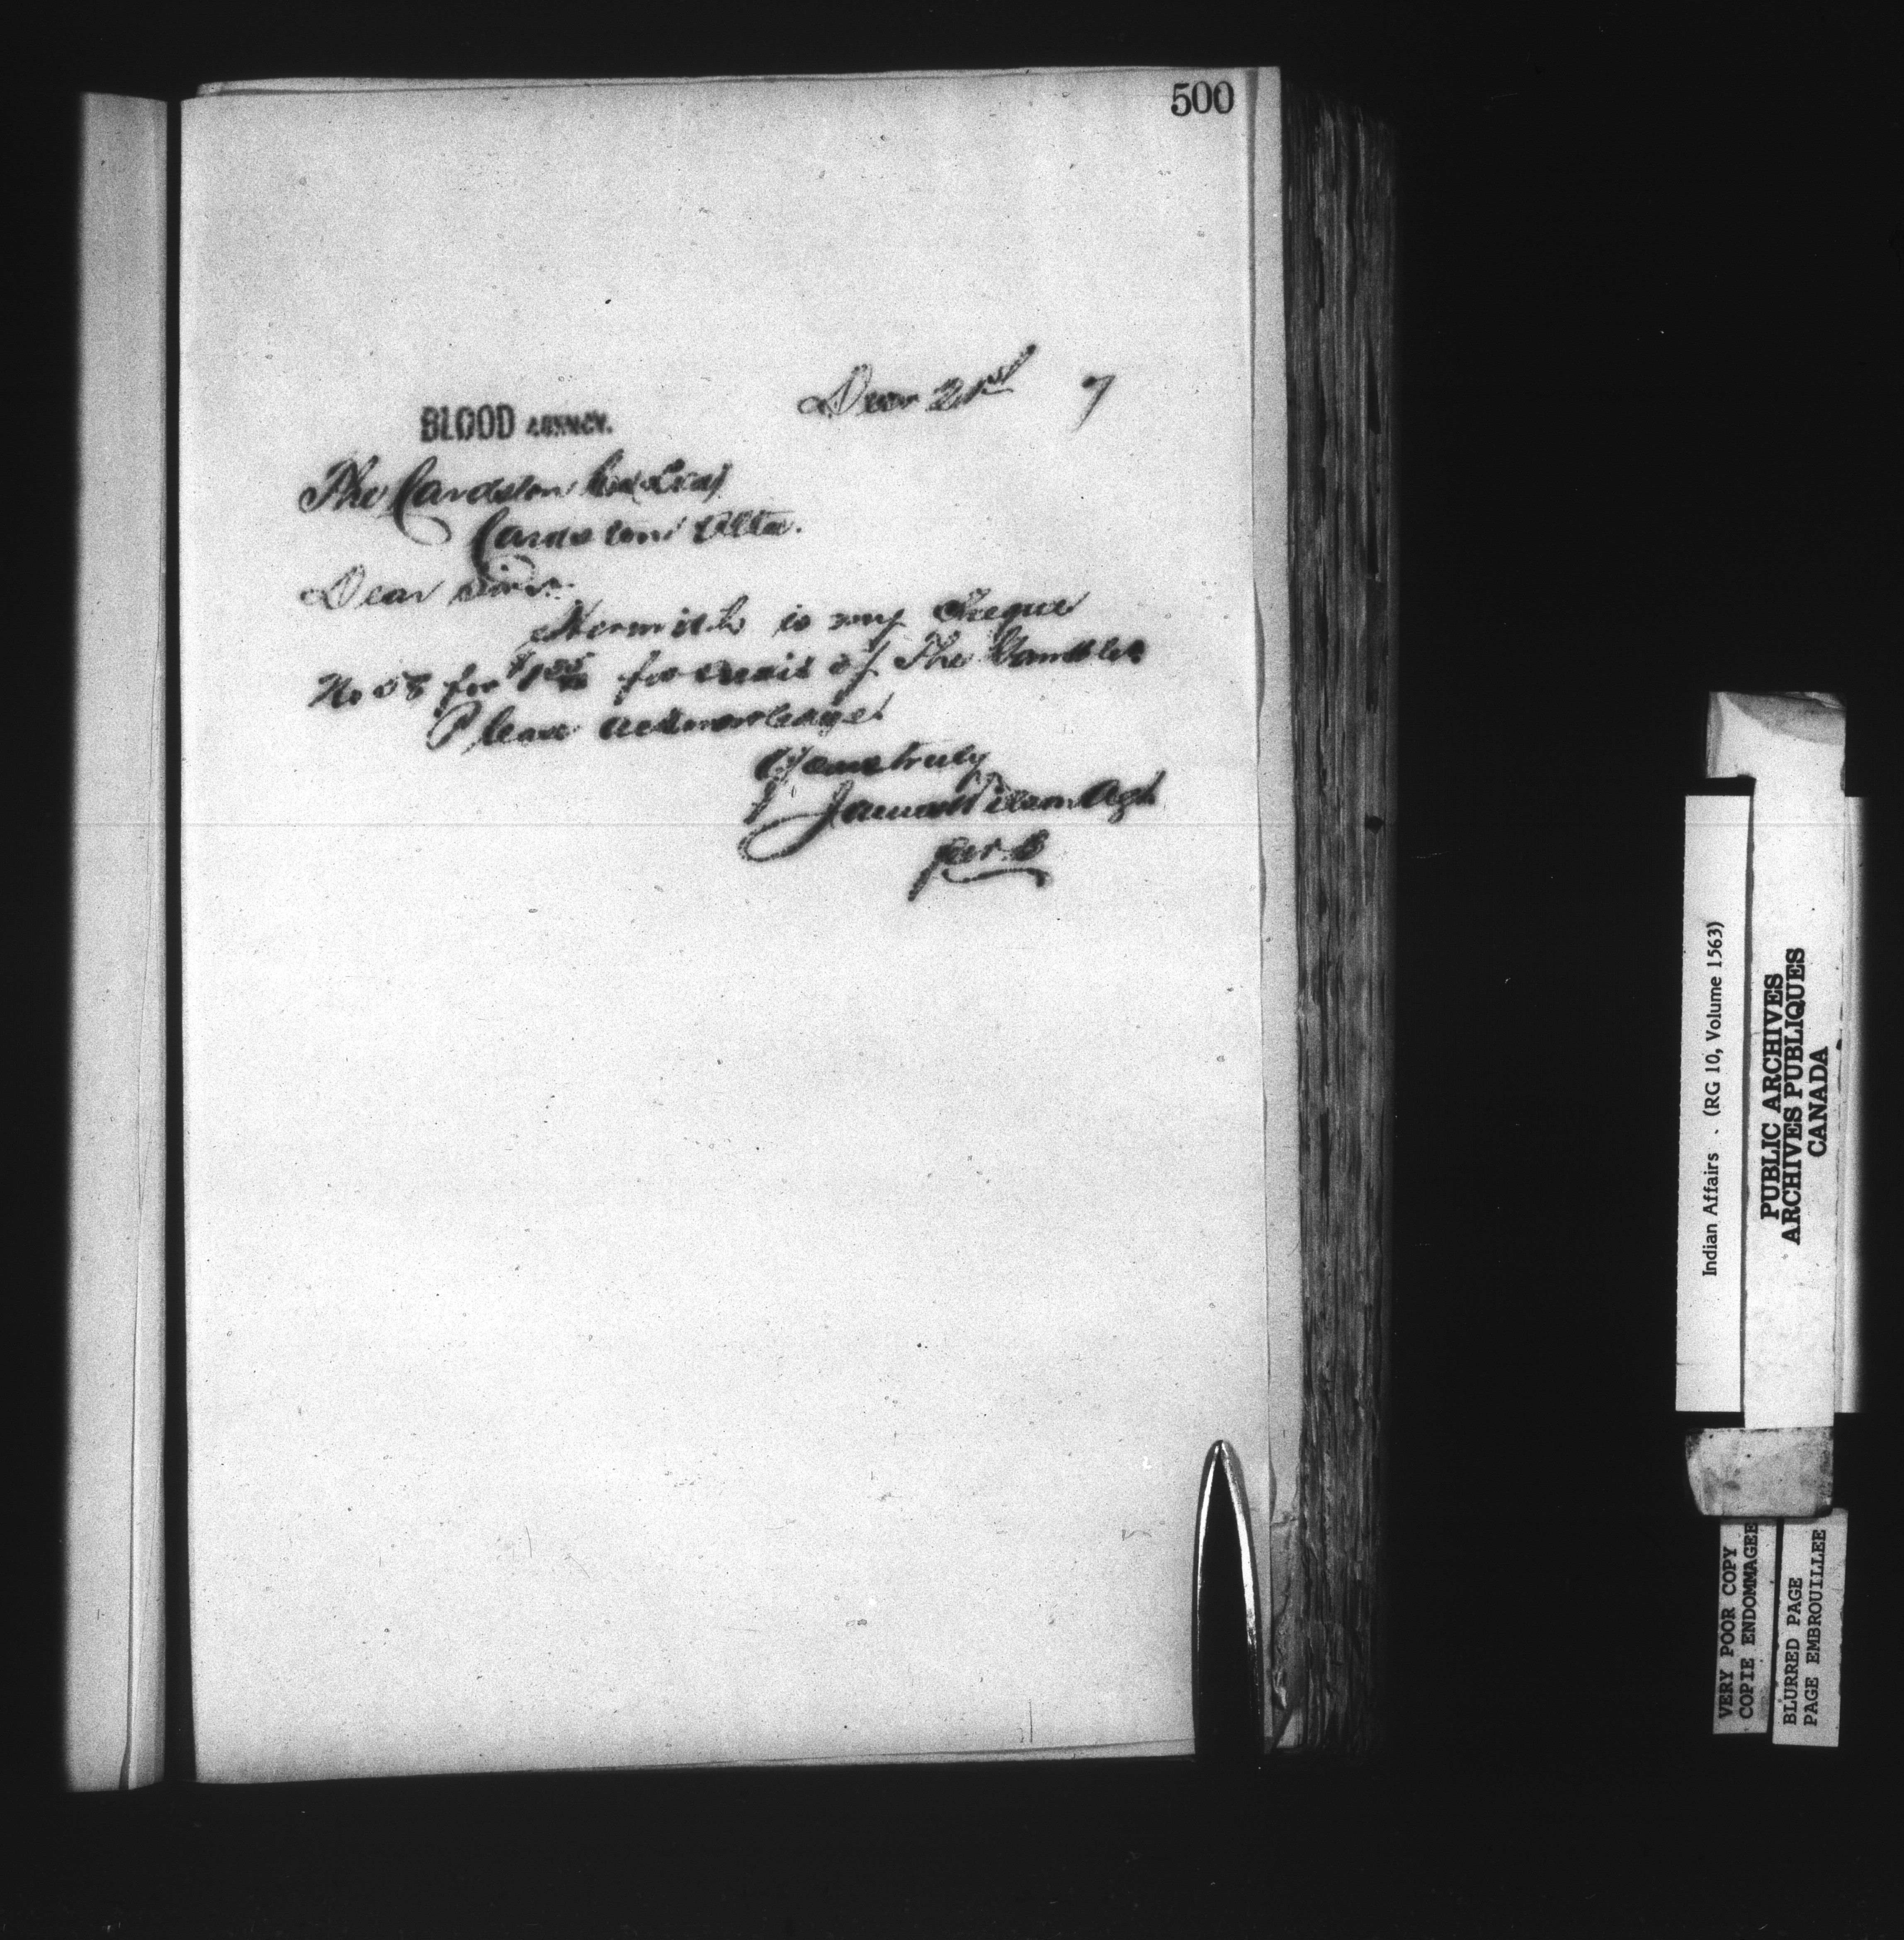 500
Decr 21st 7
BLOOD AGENCY.
The Cardston Co (Ltd)
Cardston Alta.
Dear Sirs.
Herewith is my Cheque
No 58 for for credit of The Gambler
Please acknowledge.
Yours truly
James Wilson Agt
per
Indian Affairs . (RG 10, Volume 1563)
PUBLIC ARCHIVES
ARCHIVES PUBLIQUES
CANADA
VERY POOR COPY
COPIE ENDOMMAGEE
BLURRED PAGE
PAGE EMBROUILLEE